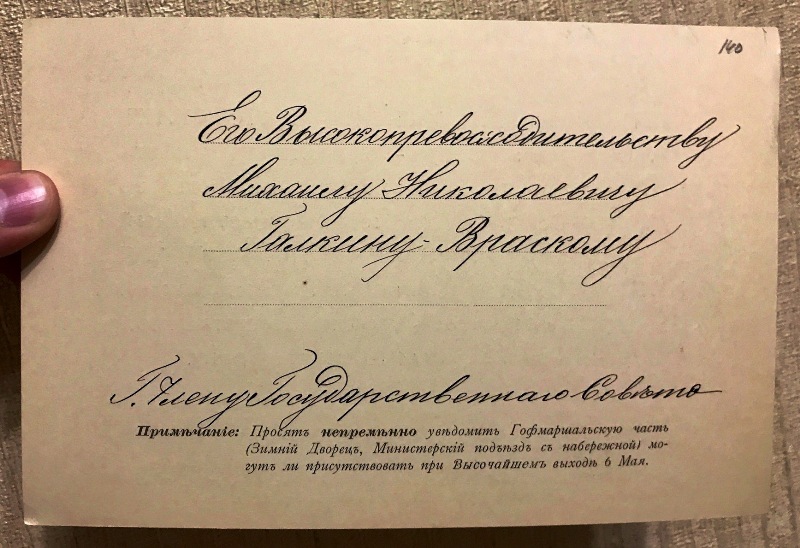 140
Его Высокопревосходительству
Михаилу Николаевичу
Галкину-Враскому
Г. Члену Государственнаго Совѣта
Примѣчаніе: Просятъ непремѣнно увѣдомить Гофмаршальскую часть
(Зимній Дворецъ, Министерскій подъѣздъ съ набережной) мо-
гутъ ли присутствовать при Высочайшемъ выходѣ 6 Мая.